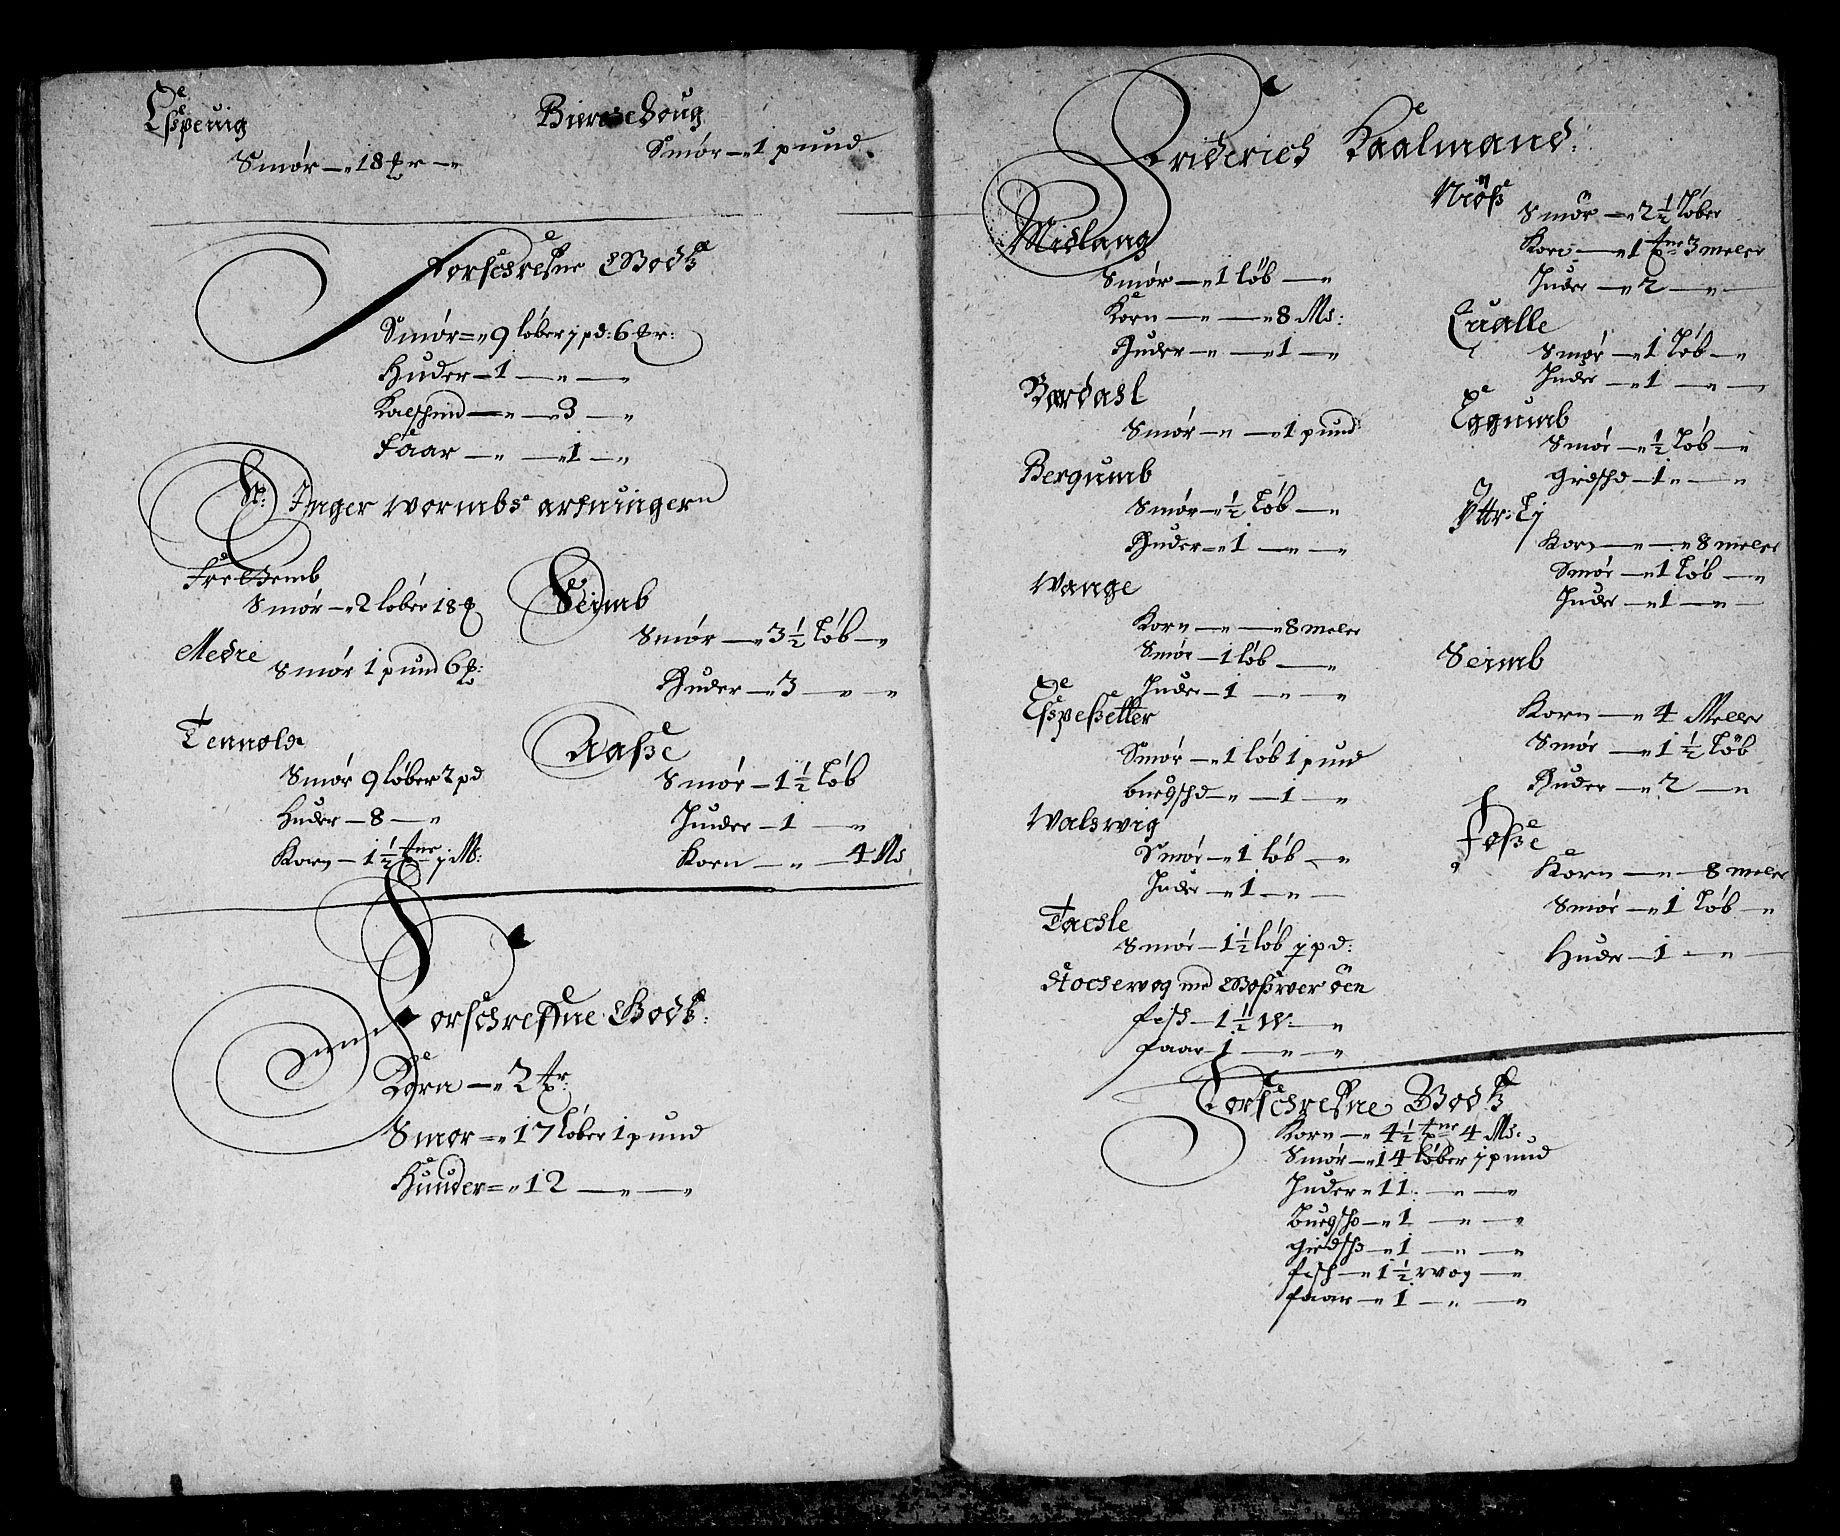 Espeuig
Smør — 18 ꝶr —
Bierschoug
Smør — 1 pund
Forschrefne Godtz
Smør = 9 løber j pd: 6 ꝶr:
Huder — 1 — —
Kalschind — — 3 —
Faar — — 1 —
S: Inger wormbs arfuinger
Smør — 2 løber 18 ꝶ
Medre
Smør 1 pund 6 ꝶ:
Tennold
Smør 9 løber 2 pd
Huder — 8 —
Korn — 1 ½ tnr j M:
Seimb
Smør — 3 ½ løb —
Huder — 3 — —
Aasse
Smør — 1 ½ løb
Huder — 1 —
Korn — — 4 Ms
Forschreffne Godtz:
Korn — 2 tr:
Smør = 17 løber 1 pund
Huuder = 12 — —
Friderich Kaalmand:
Midlang
Smør — 1 löb —
Korn — — 8 Ms:
Huder — — 1 —
Bordasl
Smør — — 1 pund
Bergumb
Smør — ½ løb —
Huder = 1 — —
Wange
Korn — — 8 meler
Smør — 1 løb —
Huder — 1 — —
Espesetter
Smør — 1 løb 1 pund
buchschd — — 1 —
Walswig
Smør — 1 løb —
Huder — 1 — —
Tachle
Smør — 1 ½ løb j pd:
Stochevog med Gosswer öen
fisch — 1 ½ W: —
faar 1 — —
Niöss
Smør — 2 ½ løber
Korn — 1 tnr 3 meler
Huder — 2 — —
Qualle
Smør — 1 løb —
Huder — 1 — —
Eggumb
Smør — ½ løb —
giedschd — 1 — —
Yttr: Ej
Korn — — 8 meler
Smør — 1 løb —
Huder — 1 — —
Seimb
Korn — 4 Meller
Smør — 1 ½ löb
Huder — 2 —
Fosse
Korn — — 8 meler
Smør — 1 løb —
Huder — 1 — —
Forschrefne Godtz
Korn — 4 ½ tnr 4 Ms:
Smør — 14 løber j pund
Huder 11 — —
Buchschd — 1 — —
giedschd — 1 — —
fisch — 1 ½ wog —
faar — 1 — —